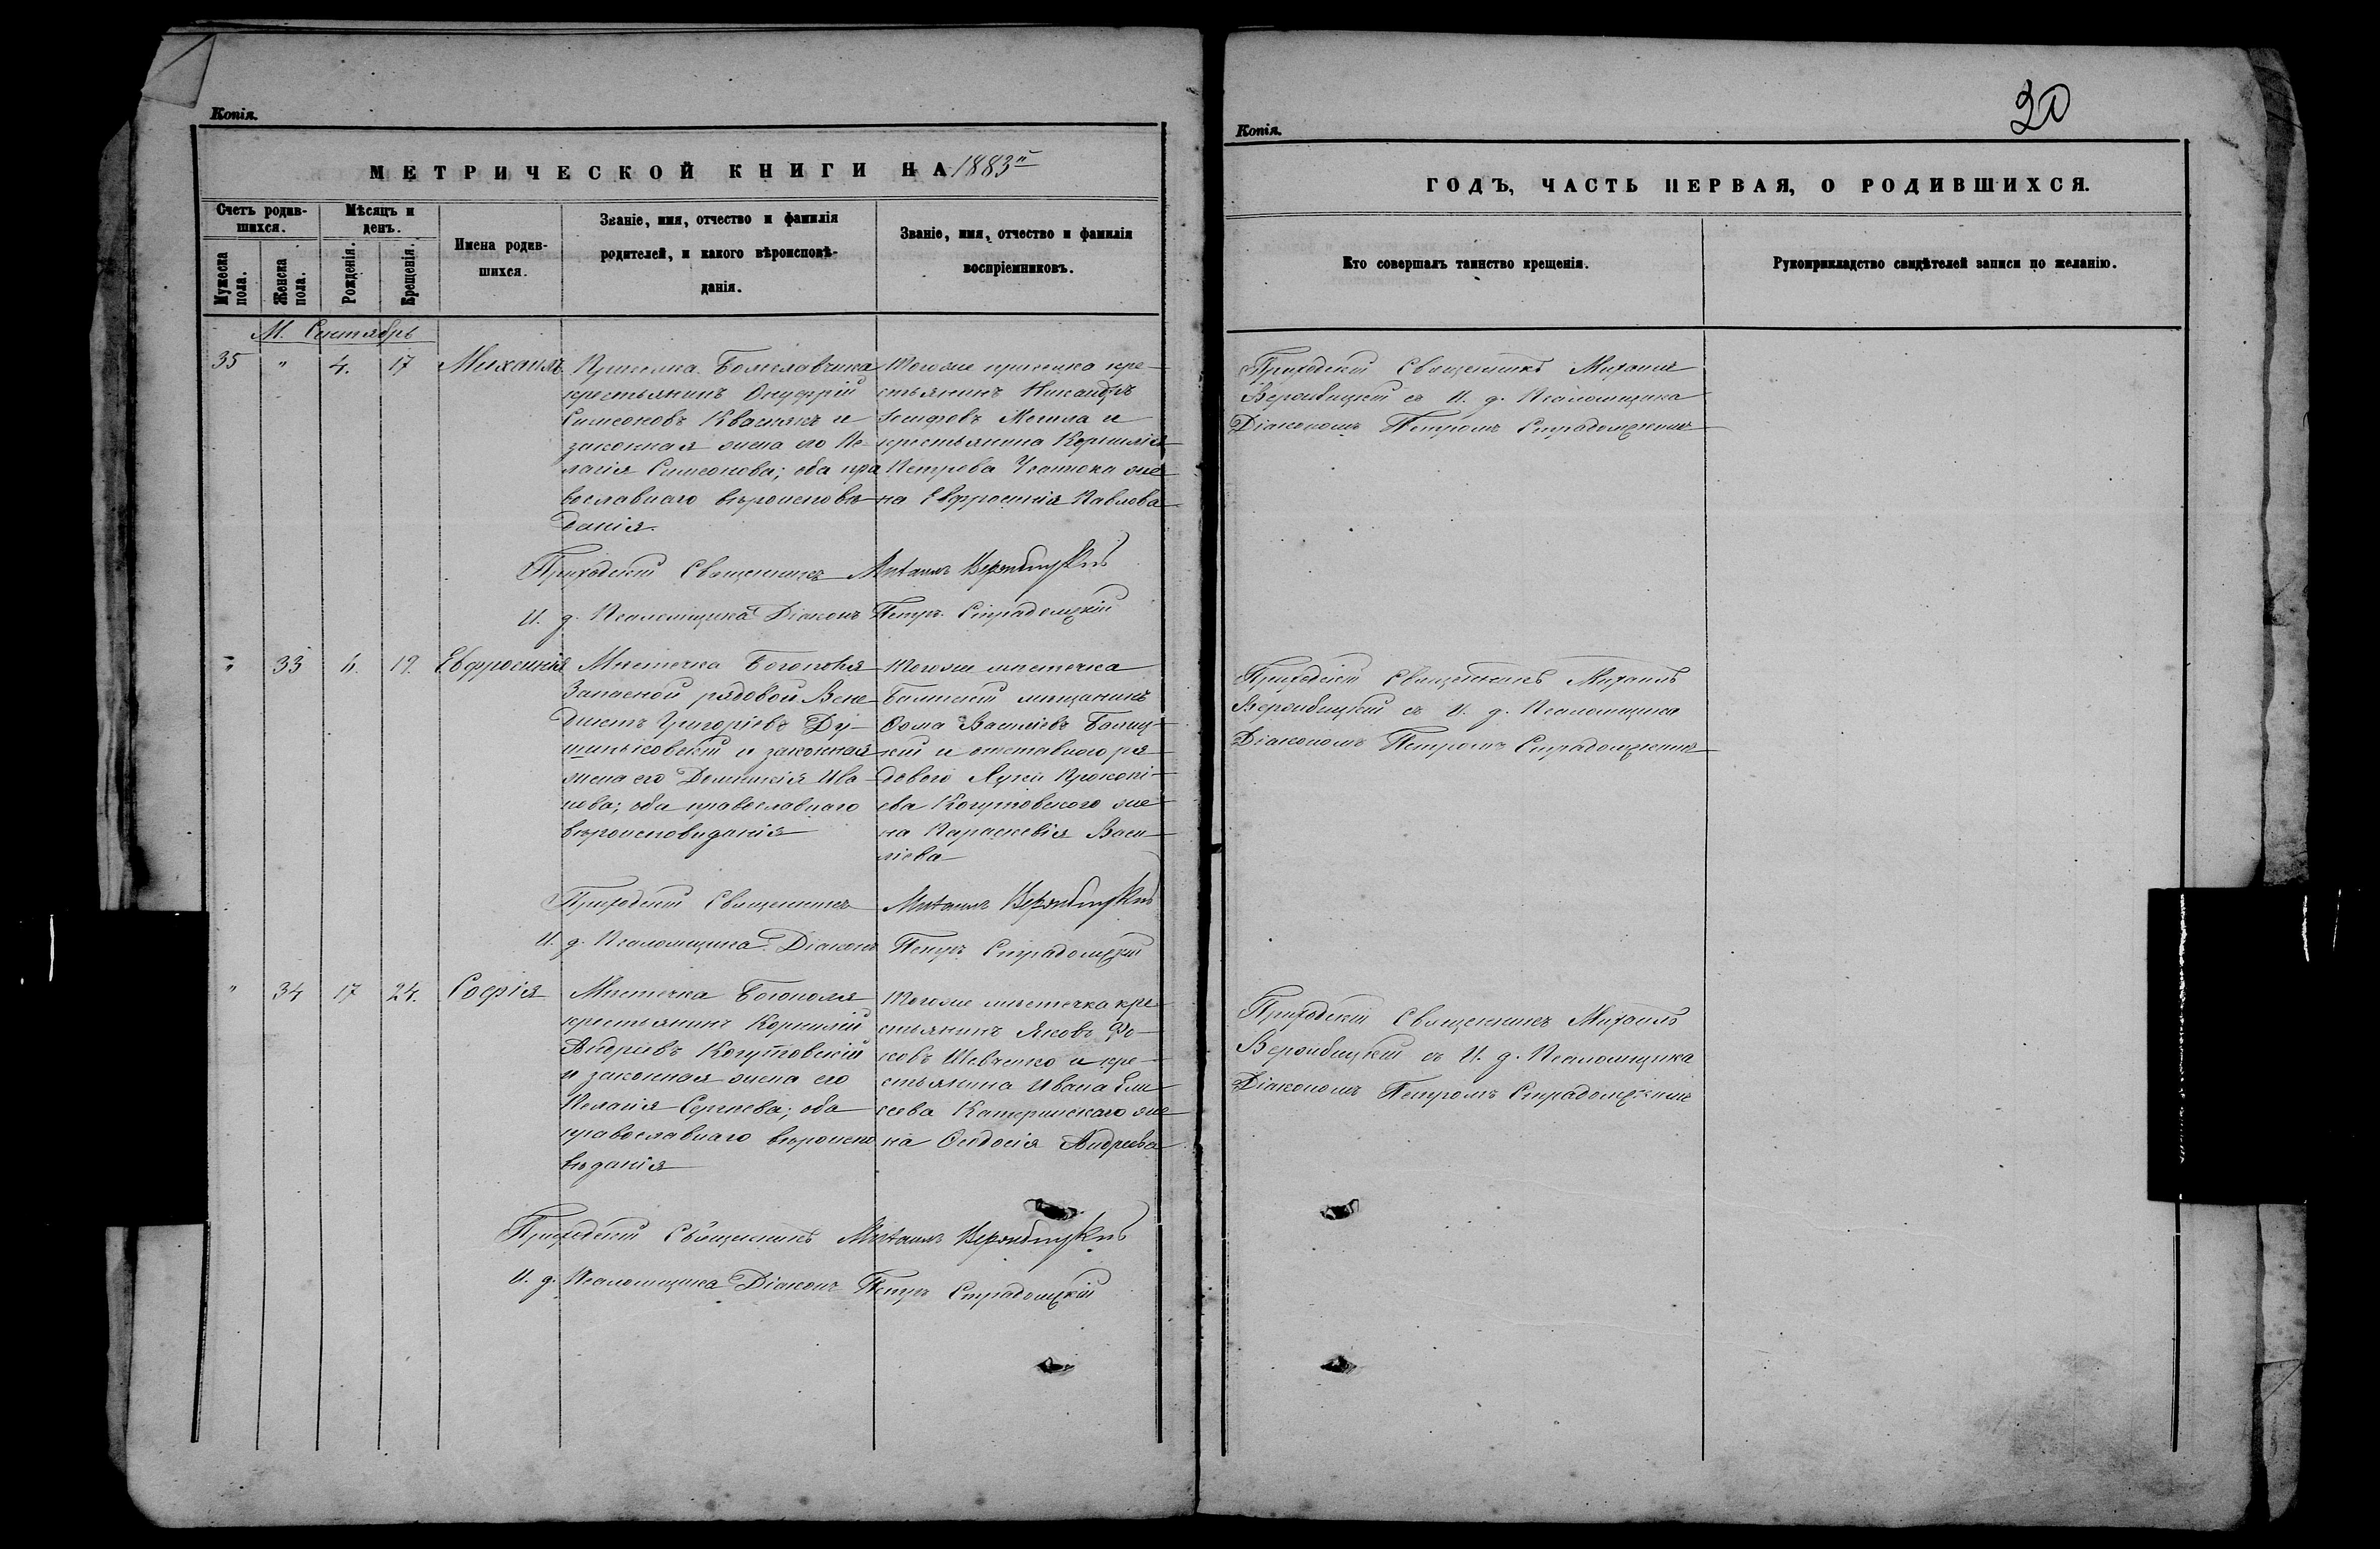 Копія.
МЕТРИЧЕСКОЙ КНИГИ НА 1883й
Счетъ родив-
шихся.
Мужеска пола.
Женска пола.
Мѣсяцъ и
день.
Рожденія.
Крещенія.
Имена родив-
шихся.
Званіе, имя, отчество и фамилія
родителей, и какого вѣроисповѣ-
данія.
Званіе, имя, отчество и фамилія
воспріемниковъ.
М. Сентябрь
35 " 4. 17 Михаилъ
Приселка Болеславчика
крестьянинъ Онуфрій
Симеоновъ Кваснякъ и
законная жена его Пе-
лагія Симеонова; оба пра
вославнаго вѣроисповѣ
данія.
Тогоже приселка кре-
стьянинъ Никандръ
Іосифовъ Могила и
крестьянина Корнилія
Петрова же
на Евфросинія Павлова
Приходскій Священникъ Михаилъ Вержбицкій
И. д. Псаломщика Діаконъ Петръ Страдомскій
" 33 19. Евфросинія
Мѣстечка Богополя
Запасной рядовой Вене
диктъ Григоріевъ Ду-
шиньковскій и законная
жена его Домникія Ива
нова; оба православнаго
вѣроисповѣданія
Тогоже мѣстечка
Балтскій мѣщанинъ
Ѳома Василіевъ Балиц-
кій и отставного ря
дового Луки Прокопі-
ева Когутовского же
на Параскевія Васи
ліева
Приходскій Священникъ Михаилъ Вержбицкій
И. д. Псаломщика Діаконъ Петръ Страдомскій
" 34 17 24. Софія
Мѣстечка Богополя
крестьянинъ Корнилій
Андреевъ Когутовскій
и законная жена его
Пелагія Сергіева; оба
православнаго вѣроиспо
вѣданія
Тогоже мѣстечка кре
стьянинъ Яковъ Фо-
ковъ Шевченко и кре-
стьянина Ивана Ели
сеева Катеринскаго же
на Ѳеодосія Андреева
Приходскій Священникъ Михаилъ Вержбицкій
И. д. Псаломщика Діаконъ Петръ Страдомскій
Копія.
20
ГОДЪ, ЧАСТЬ ПЕРВАЯ, О РОДИВШИХСЯ.
Кто совершалъ таинство крещенія.
Рукоприкладство свидѣтелей записи по желанію.
Приходскій Священникъ Михаилъ
Вержбицкій съ И. д. Псаломщика
Діакономъ Петромъ Страдомскимъ
Приходскій Священникъ Михаилъ
Вержбицкій съ И. д. Псаломщика
Діакономъ Петромъ Страдомскимъ
Приходскій Священникъ Михаилъ
Вержбицкій съ И. д. Псаломщика
Діакономъ Петромъ Страдомскимъ